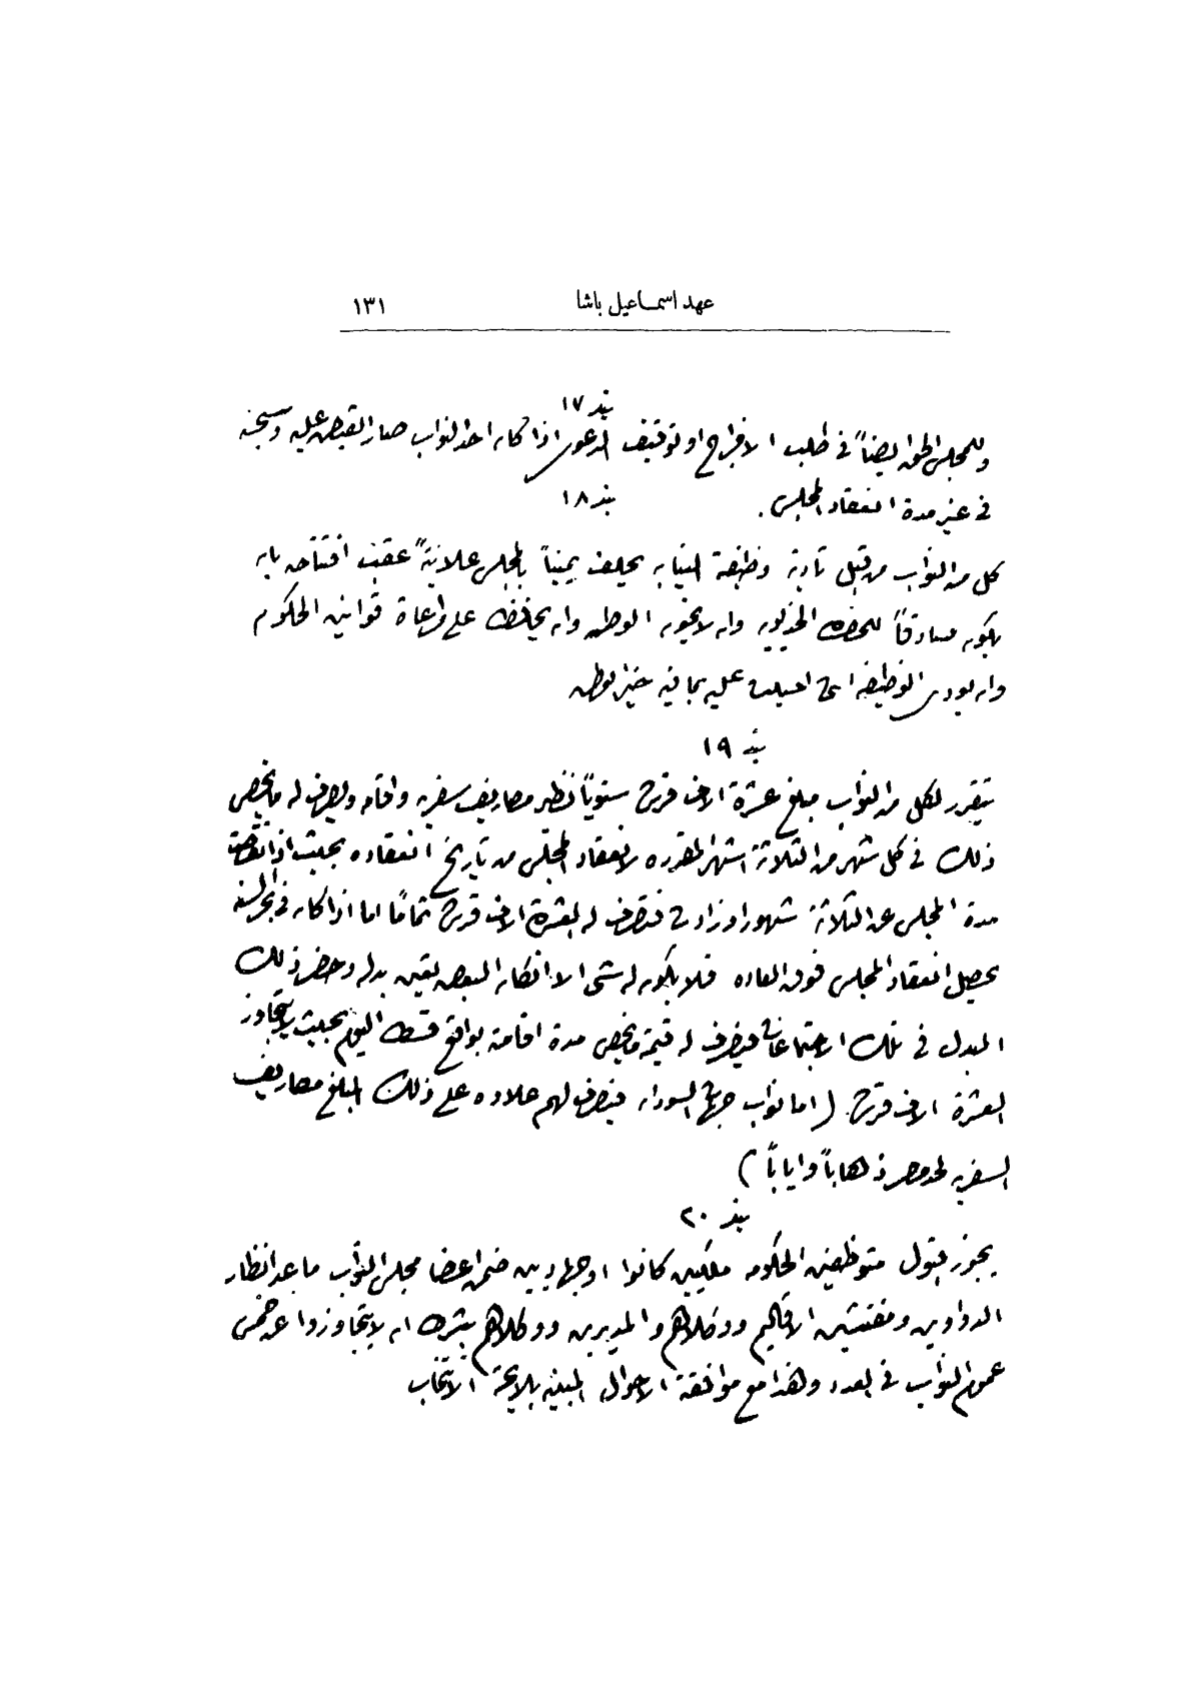 عهد اسماعيل باشا ١٣١
بند ١٧
وللمجلس الحق ايضاً في طلب الافراج او توقيف الدعوى اذا كان احد النواب صار القبض عليه وسجنه
في غير مدة انعقاد المجلس.
بند ١٨
كل من النواب من قبل تادية وظيفة النيابه يحلف يميناً بالمجلس علانيةً عقب افتتاحه بان
يكون صادقاً للحضره الخديويه وان لا يخون الوطن وان يحافظ على مراعاة قوانين الحكومه
وان يودى الوظيفه التى احيلت عليه بما فيه خير الوطن
بند ١٩
يتقرر لكل من النواب مبلغ عشرة الاف قرش سنوياً نظير مصاريف سفريه واقامه ويصرف له ما يخص
ذلك في كل شهر من الثلاثة اشهر المقرره لانعقاد المجلس من تاريخ انعقاده بحيث اذا نقصت
مدة المجلس عن الثلاثة شهور او زادت فتصرف له العشرة الاف قرش تماماً اما اذا كان في بحر السنه
يحصل انعقاد المجلس فوق العاده فلا يكون له شى الا اذا كان البعض تعين بدله وحضر ذلك
البدل في تلك الاجتماعات فيصرف له قيمة ما يخص مدة اقامته بواقع قسط اليوم بحيث لا يتجاوز
العشرة الاف قرش ( اما نواب جهات السودان فيصرف لهم علاوه على ذلك المبلغ مصاريف
السفريه لحد مصر ذهاباً واياباً )
بند ٢٠
يجوز قبول متوظفين الحكومه ملكيين كانوا او جهاديين ضمن اعضا مجلس النواب ما عدا نظار
الدواوين ومفتشين الاقاليم ووكلاهم والمديرين ووكلاهم بشرط ان لا يتجاوزوا عن خمس
عموم النواب في العدد وهذا مع موافقة الاحوال المبينه بلايحة الانتخاب